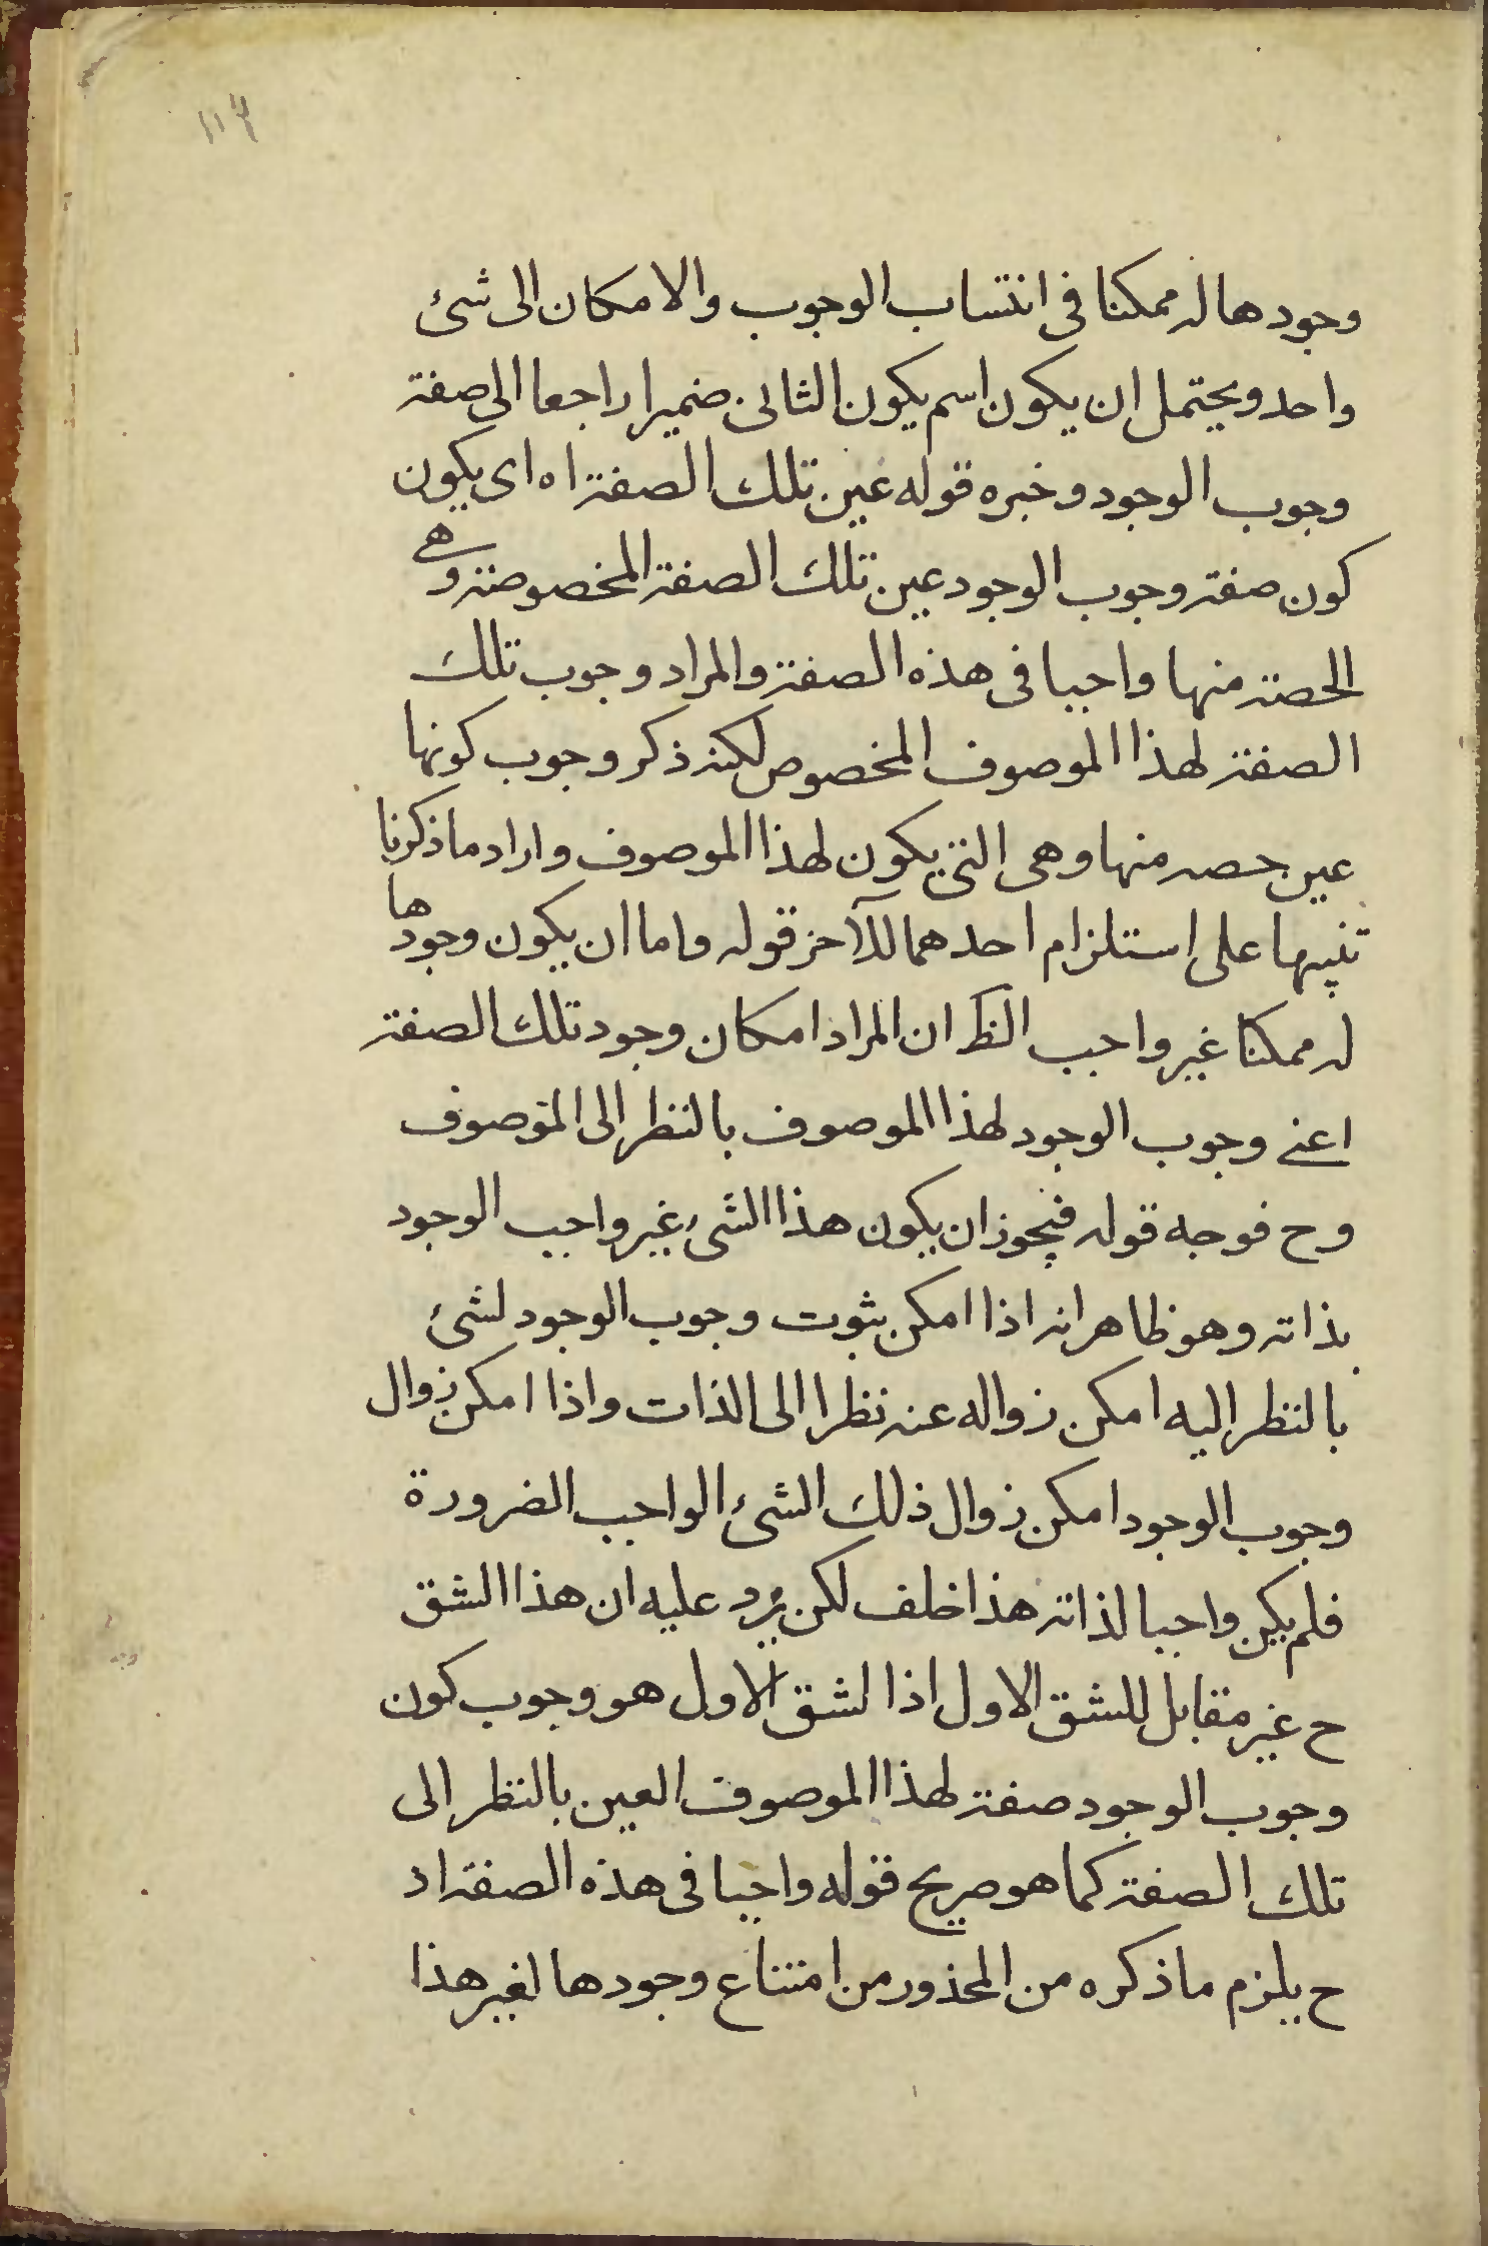 ١١٤
وجودها له ممكنا فى انتساب الوجوب والامكان الى شئ
واحد ويحتمل ان يكون اسم يكون الثانى ضميرا راجعا الى صفة
وجوب الوجود وخبره قوله عين تلك الصفة اه اى يكون
كون صفة وجوب الوجود عين تلك الصفة المخصوصة وهى
الحصة منها واجبا فى هذه الصفة والمراد وجوب تلك
الصفة لهذا الموصوف المخصوص لكنه ذكر وجوب كونها
عين حصه منها وهى التى يكون لهذا الموصوف واراد ما ذكرنا
تنبيها على استلزام احدهما للآخر قوله واما ان يكون وجودها
له ممكنا غير واجب الظ ان المراد امكان وجود تلك الصفة
اعنے وجوب الوجود لهذا الموصوف بالنظر الى الموصوف
وح فوجه قوله فيجوز ان يكون هذا الشئ غير واجب الوجود
بذاته وهو ظاهر انه اذا امكن ثبوت وجوب الوجود لشئ
بالنظر اليه امكن زواله عنه نظرا الى الذات واذا امكن زوال
وجوب الوجود امكن زوال ذلك الشئ الواجب الضرورة
فلم يكن واجبا لذاته هذا خلف لكن يرد عليه ان هذا الشق
ح غير مقابل للشق الاول اذا لشق الاول هو وجوب كون
وجوب الوجود صفة لهذا الموصوف العين بالنظر الى
تلك الصفة كما هو صريح قوله واجبا فى هذه الصفة اد
ح يلزم ما ذكره من المحذور من امتناع وجودها لغير هذا